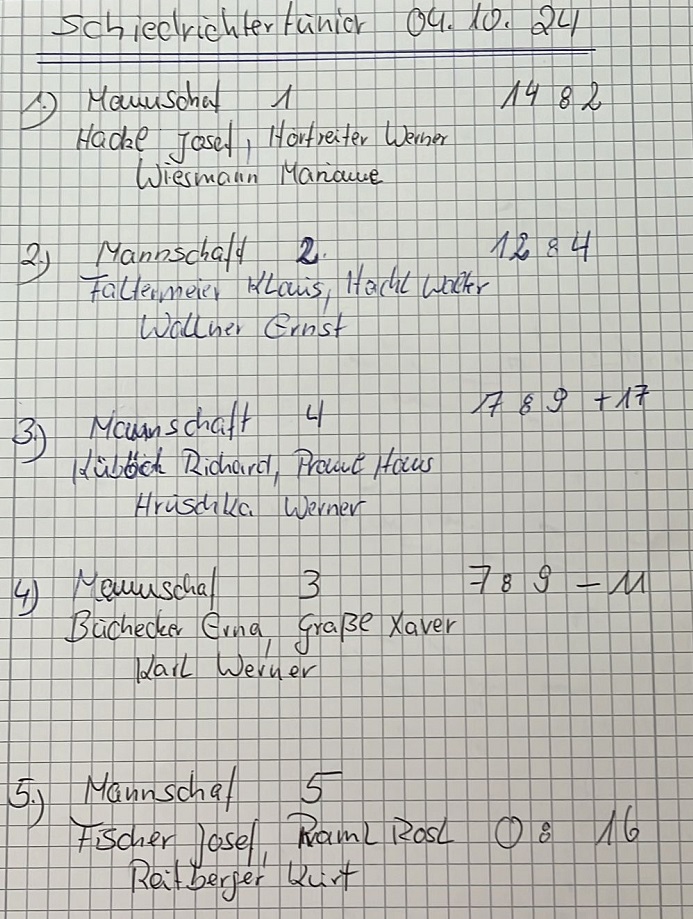 Schiedrichterturnier 04. 10. 24
1.) Mannschaf 1 14 : 2
Hackl Josef, Hortreiter Werner
Wiesmann Marianne
2.) Mannschaft 2. 12 : 4
Faltermeier Klaus, Hackl Walter
Wallner Ernst
3.) Mannschaft 4 7 : 9 + 17
Küblöck Richard, Hans
Hruschka Werner
4.) Mannschaf 3 7 : 9 - 11
Bachecker Erna, Graße Xaver
Karl Werner
5.) Mannschaf 5
Fischer Josef, Raml Rosl 0 : 16
Reitberger Kurt